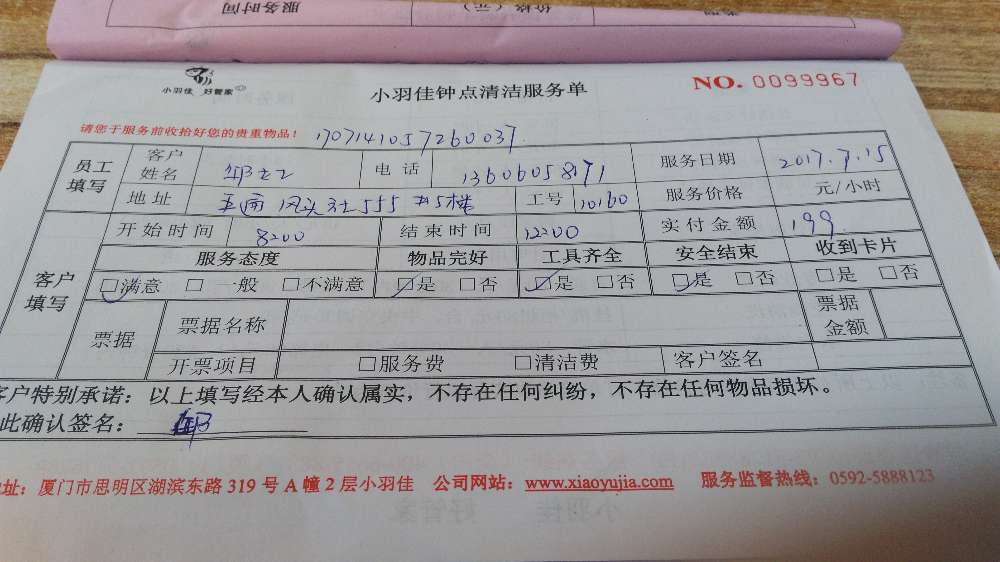 服务时间 价格（元）
小羽佳 好管家
小羽佳钟点清洁服务单
NO. 0099967
请您于服务前收拾好您的贵重物品！
1707141057260037
员工填写 客户姓名 电话 13606058171 服务日期 2017.7.15
地址 555 工号 10160 服务价格 元/小时
客户填写 开始时间 8:00 结束时间 12:00 实付金额 199
服务态度 物品完好 工具齐全 安全结束 收到卡片
□满意 □一般 □不满意 □是 □否 □是 □否 □是 □否 □是 □否
票据 票据名称 票据金额
开票项目 □服务费 □清洁费 客户签名
客户特别承诺：以上填写经本人确认属实，不存在任何纠纷，不存在任何物品损坏。
此确认签名：
地址：厦门市思明区湖滨东路 319 号 A 幢 2 层小羽佳 公司网站：www.xiaoyujia.com 服务监督热线：0592-5888123